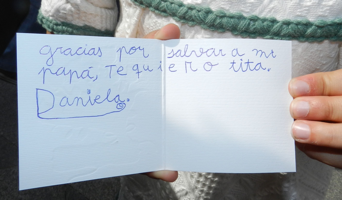 gracias por salvar a mi
papá, Te quiero tita.
Daniela.